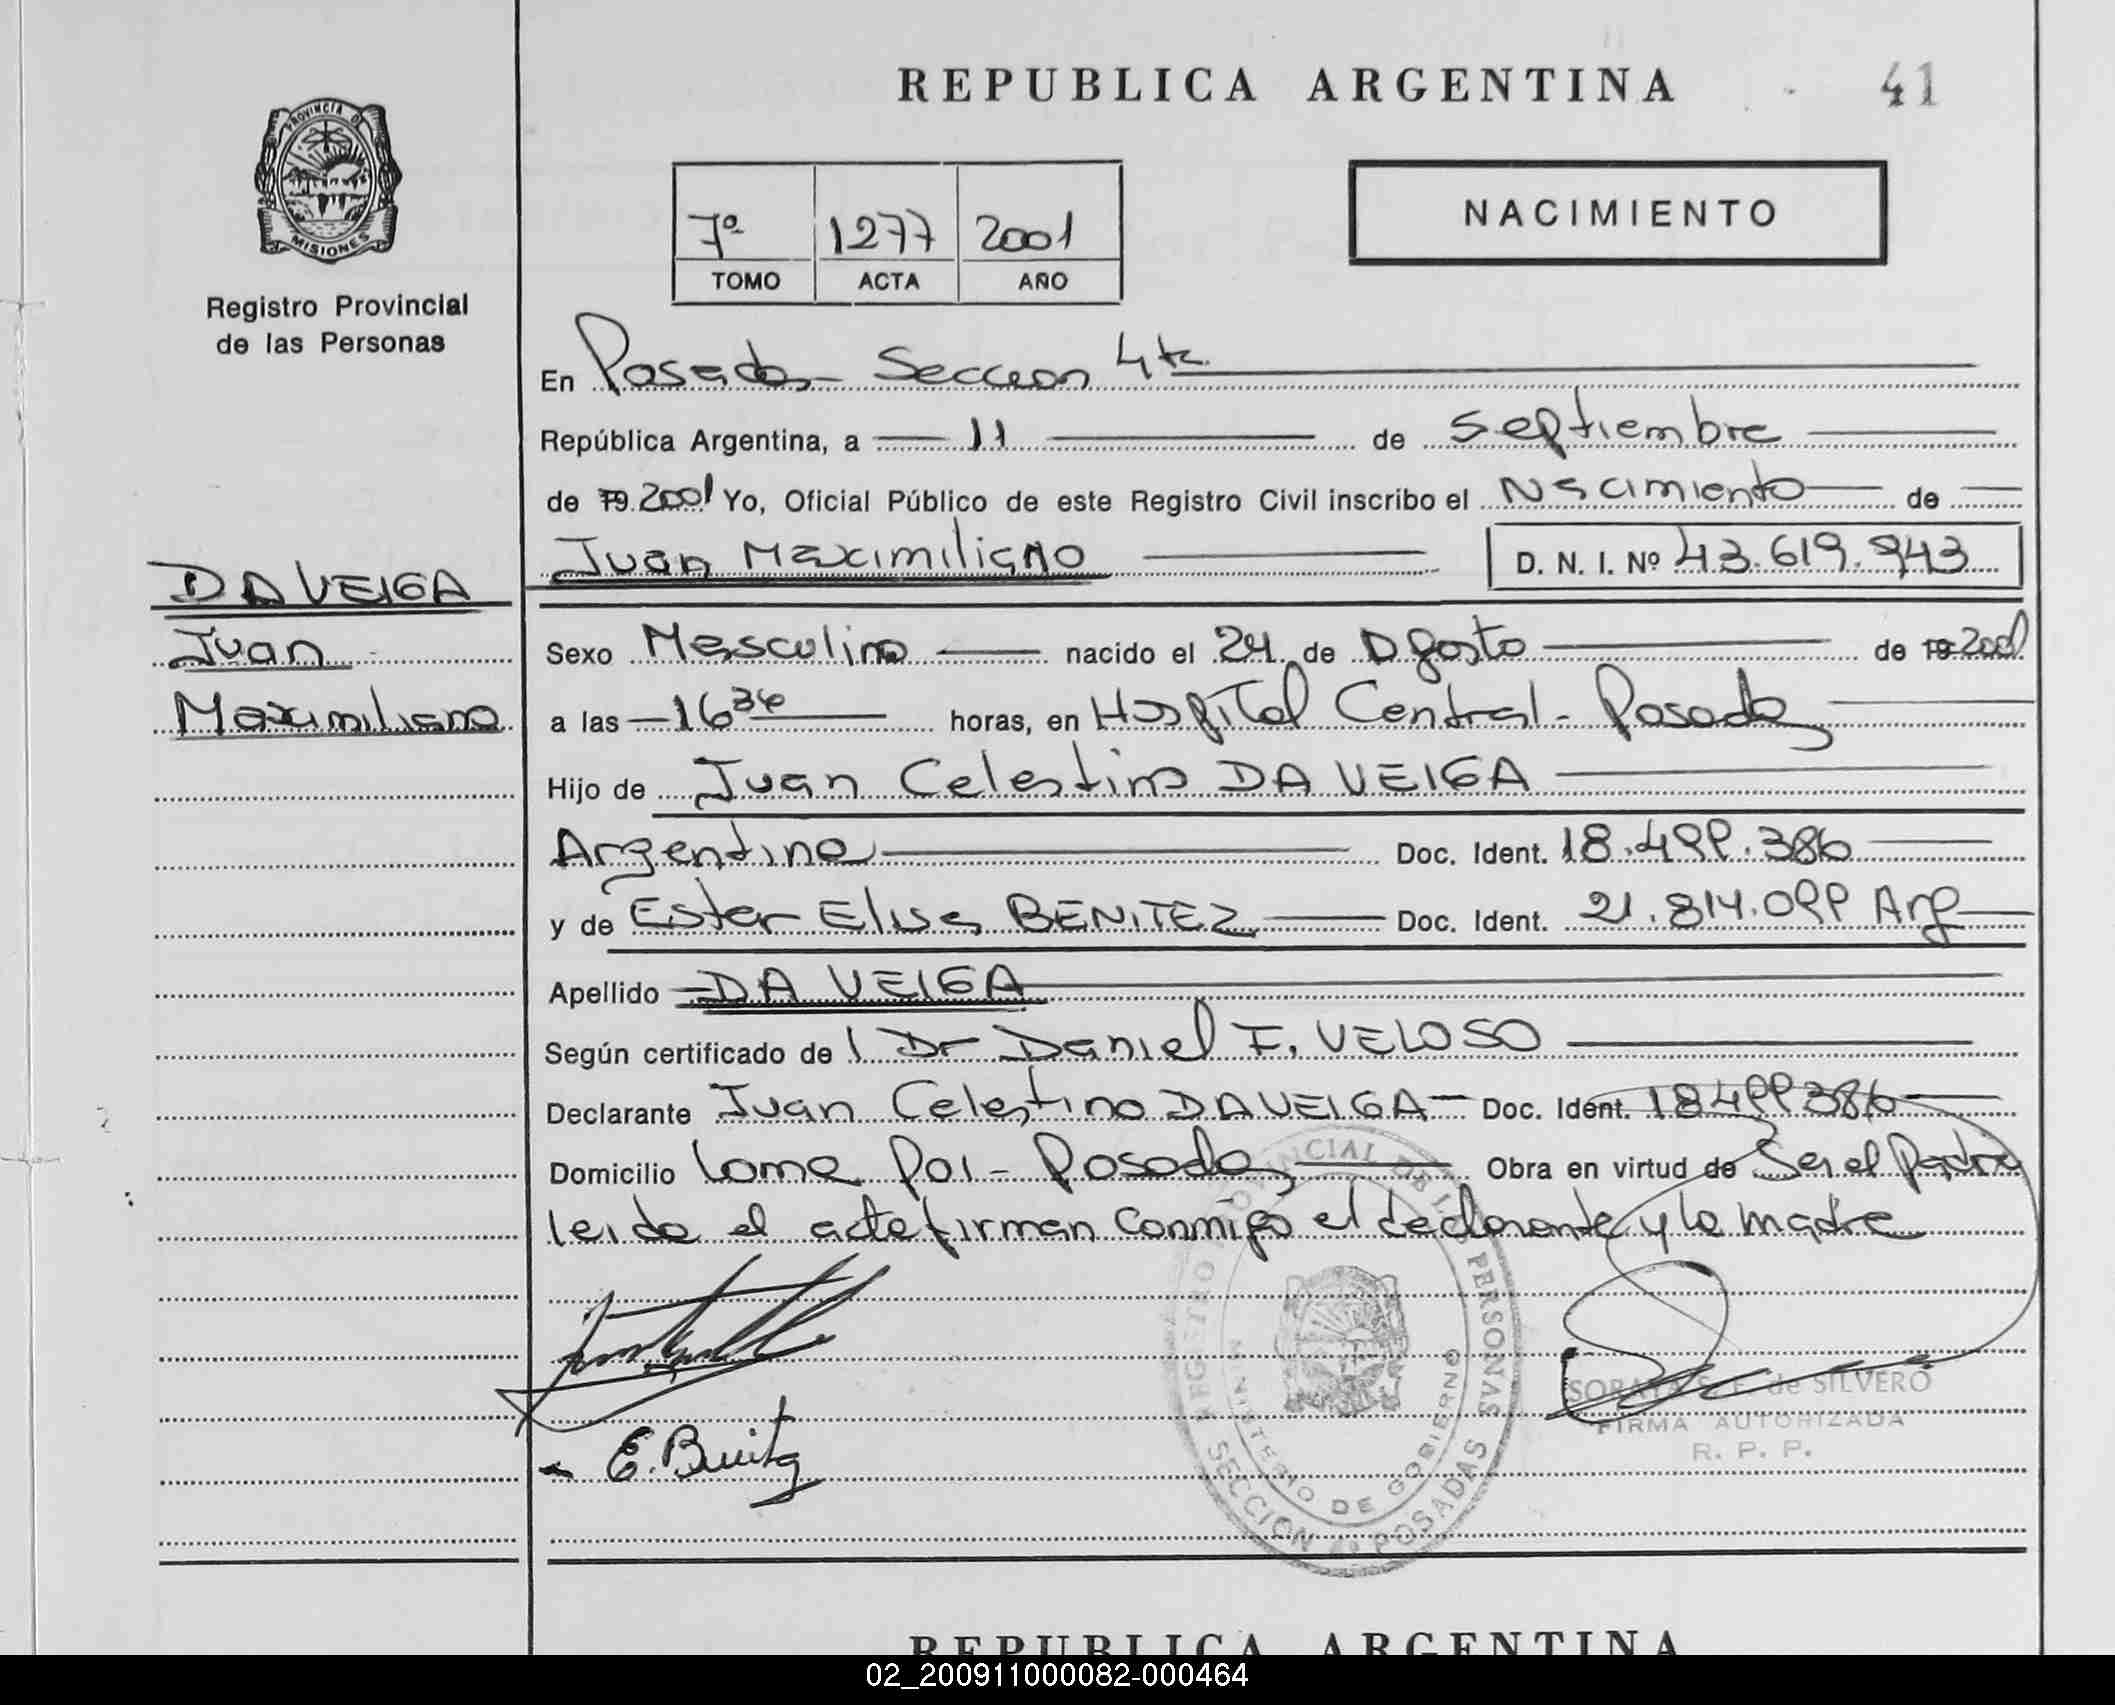 REPUBLICA ARGENTINA
41
PROVINCIA DE
MISIONES
Registro Provincial
de las Personas
7º 1277 2001
TOMO ACTA AÑO
NACIMIENTO
En Posadas Seccion 4ta
República Argentina, a 11 de Septiembre
de 19 2001 Yo, Oficial Público de este Registro Civil inscribo el Nacimiento de
Juan Maximiliano D. N. I. Nº 43.619.943
DA VEIGA
Juan
Maximiliano
Sexo Masculino nacido el 24 de Agosto de 19 2001
a las 16 34 horas, en Hospital Central - Posadas
Hijo de Juan Celestino DA VEIGA
Argentino Doc. Ident. 18.499.386
y de Ester Elisa BENITEZ Doc. Ident. 21.814.099 Arg
Apellido DA VEIGA
Según certificado de Dr Daniel F. VELOSO
Declarante Juan Celestino DA VEIGA Doc. Ident. 18499386
Domicilio Loma Poi - Posadas Obra en virtud de Ser el padre
leida el acta firman conmigo el declarante y la madre
REGISTRO PROVINCIAL DE LAS PERSONAS
MINISTERIO DE GOBIERNO
SECCION 4º POSADAS
SORAYA S. F. de SILVERO
FIRMA AUTORIZADA
R. P. P.
E. Benitez
REPUBLICA ARGENTINA
02_200911000082-000464